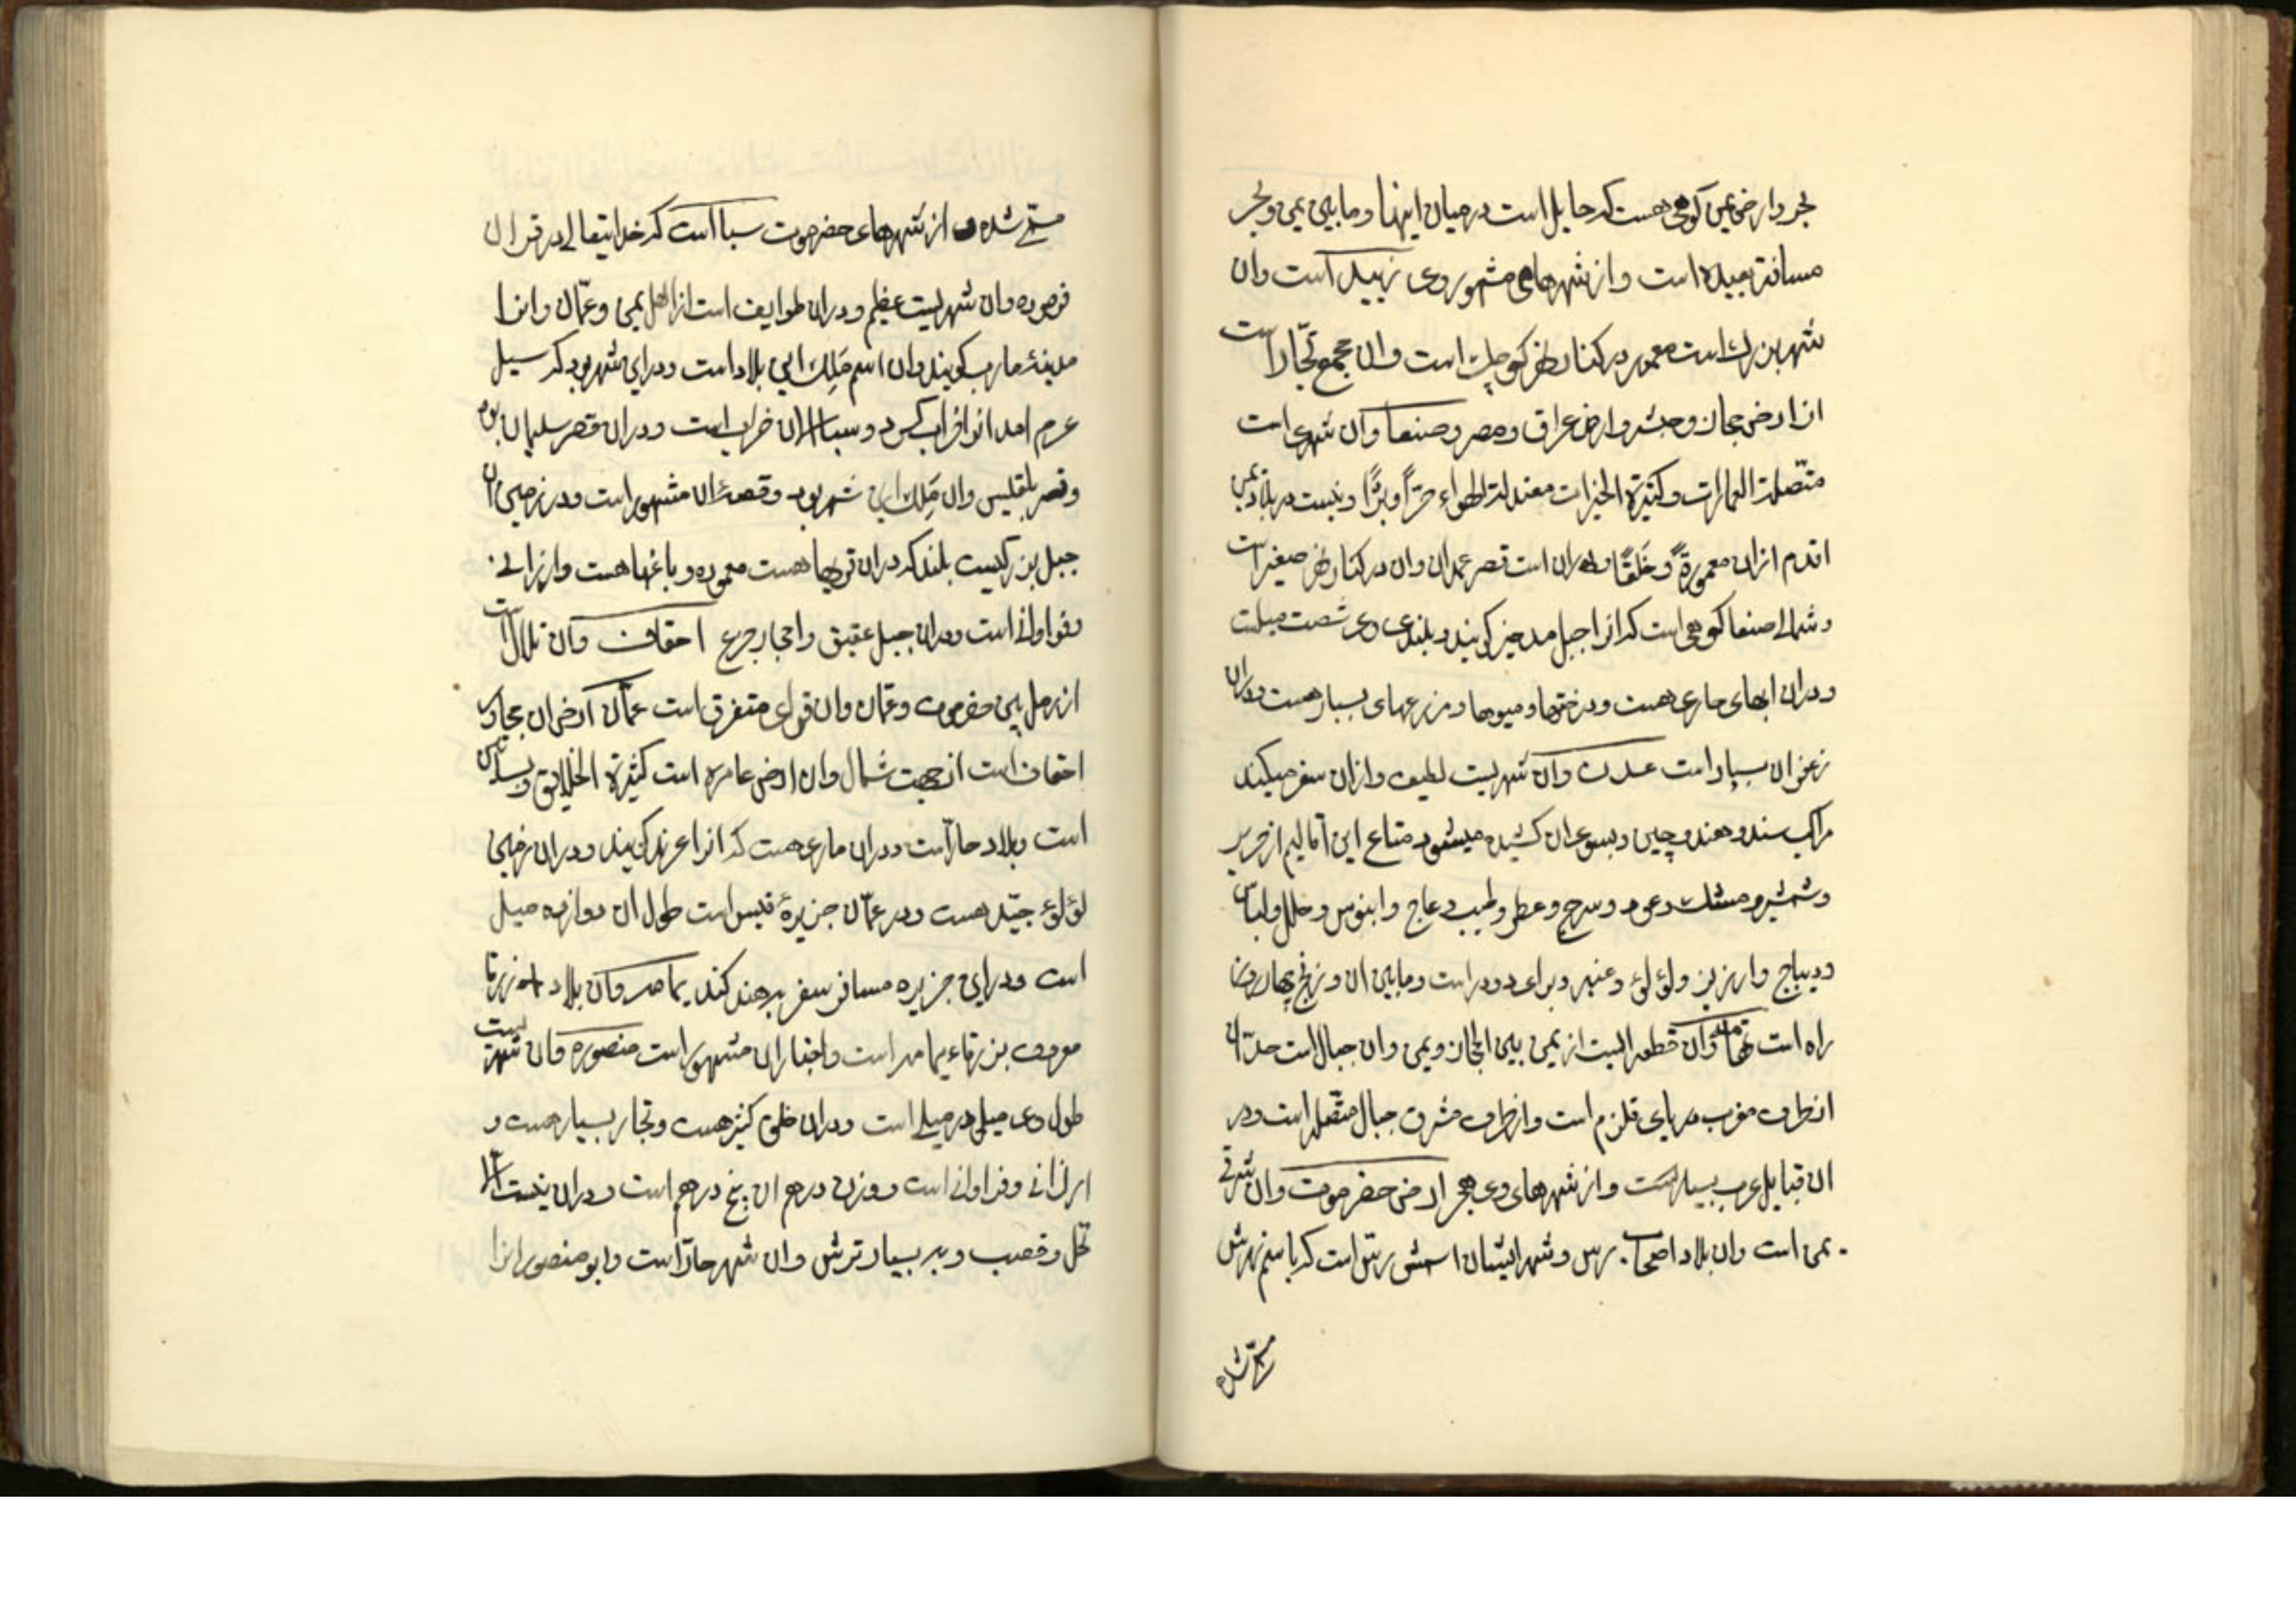 بحر و ارض یمن کوهی هست که حایل است در میان اینها و ما بین یمن و بحر
مسافة بعیده است و از شهرهای مشهور وی زبید است و ان
شهر بزرك است معمور در کنار نهر کوچك است و ان مجمع تجّار است
از ارض حجاز و حبشه و ارض عراق و مصر و صنعا و ان شهری است
متّصلة العمارات و کثیرة الخیرات معتدلة الهواء حرّاً و برداً و نیست در بلاد یمن
اقدم ازان معمورةً و خلقاً و در ان است قصر عمدان و ان در کنار نهر صغیر است
و شمالی صنعا کوهی است که انرا جبل مدخیر کویند و بلندی وی شصت میلست
و دران ابهای جاری هست و درختها و میوها و مزرعهای بسیار هست و دران
زعفران بسیار است عدن و ان شهریست لطیف و ازان سفر میکنند
مراکب سند و هند و چین و بسوی ان کشیده میشود متاع این اقالیم از حریر
و شمشیر و مشك و عود و سرج و عطر و طیب و عاج و ابنوس و حلل و لباس
و دیباج و ارزیز و لؤلؤ و عنبر و برای دود است و ما بین ان و زنج چهار روزه
راه است تهامه و ان قطعه ایست از یمن بین الحجاز و یمن و ان جبال است حدّ ان
از طرف مغرب دریای قلزم است و از طرف مشرق جبال متّصله است و در
ان قبایل عرب بسیار است و از شهرهای وی هجر ارض حضرموت و ان شرقی
یمن است و ان بلاد اصحاب رس و شهر ایشان اسمش رسّ است که باسم نهرش
مسمّی شده
مسمّی شده و از شهرهای حضرموت سبا است که خدایتعالی در قران
فرموده و ان شهریست عظیم و دران طوایف است از اهل یمن و عمّان و انرا
مدینهٔ مارب کویند و ان اسم مَلِك این بلاد است و در این شهر بود که سیل
عرم امد انرا خراب کرد و سبا الان خراب است و دران قصر سلیمان بود
و قصر بلقیس و ان مَلِكۀ این شهر بود و قصهٔ ان مشهور است و در زمین ان
جبل بزرکیست بلند که دران قریها هست معموره و باغها هست و ارزانی
و فراوانی است و دران جبل عقیق و احجار جزع احقاف و ان تلال است
از رمل بین حضرموت و عمّان و ان قرای متفرق است عمّان ارض ان مجاور
احقاف است از جهت شمال و ان ارض عامره است کثیرة الخلایق و بساتین
است و بلاد حارّ است و دران ماری هست که انرا عربد کویند و دران زمین
لؤلؤ جیّد هست و در عمّان جزیرهٔ قیس است طول ان دوازده میل
است و در این جزیره مسافر سفر به هند کند یمامه و ان بلاد زرقا
معروف بزرقاء یمامه است و اخبار ان مشهور است منصوره و ان شهریست
طول وی میلی در میلی است و دران خلق کثیر هست و تجار بسیار هست و
ارزانی و فراوانی است و وزن درهم ان پنج درهم است و دران نیست الا
نخل و قصب و به بسیار ترش و ان شهر حارّ است و ابو منصور انرا